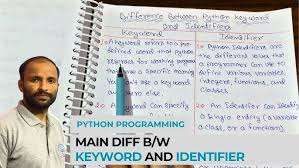 Difference Between Python keyword
and Identifiers
Keyword
Identifier
1) A keyword refers to a pre-
defined word that python
reserves for working program
have a specific meaning
You
2) Keyword Can Specify
1) Python Identifiers are
the different values that
a programmer can use to
define various variables,
integers, functions,
and classes.
2) An Identifier Can Identify
a Single entity (a variable,
a class, or a function)
PYTHON PROGRAMMING
MAIN DIFF B/W
KEYWORD AND IDENTIFIER